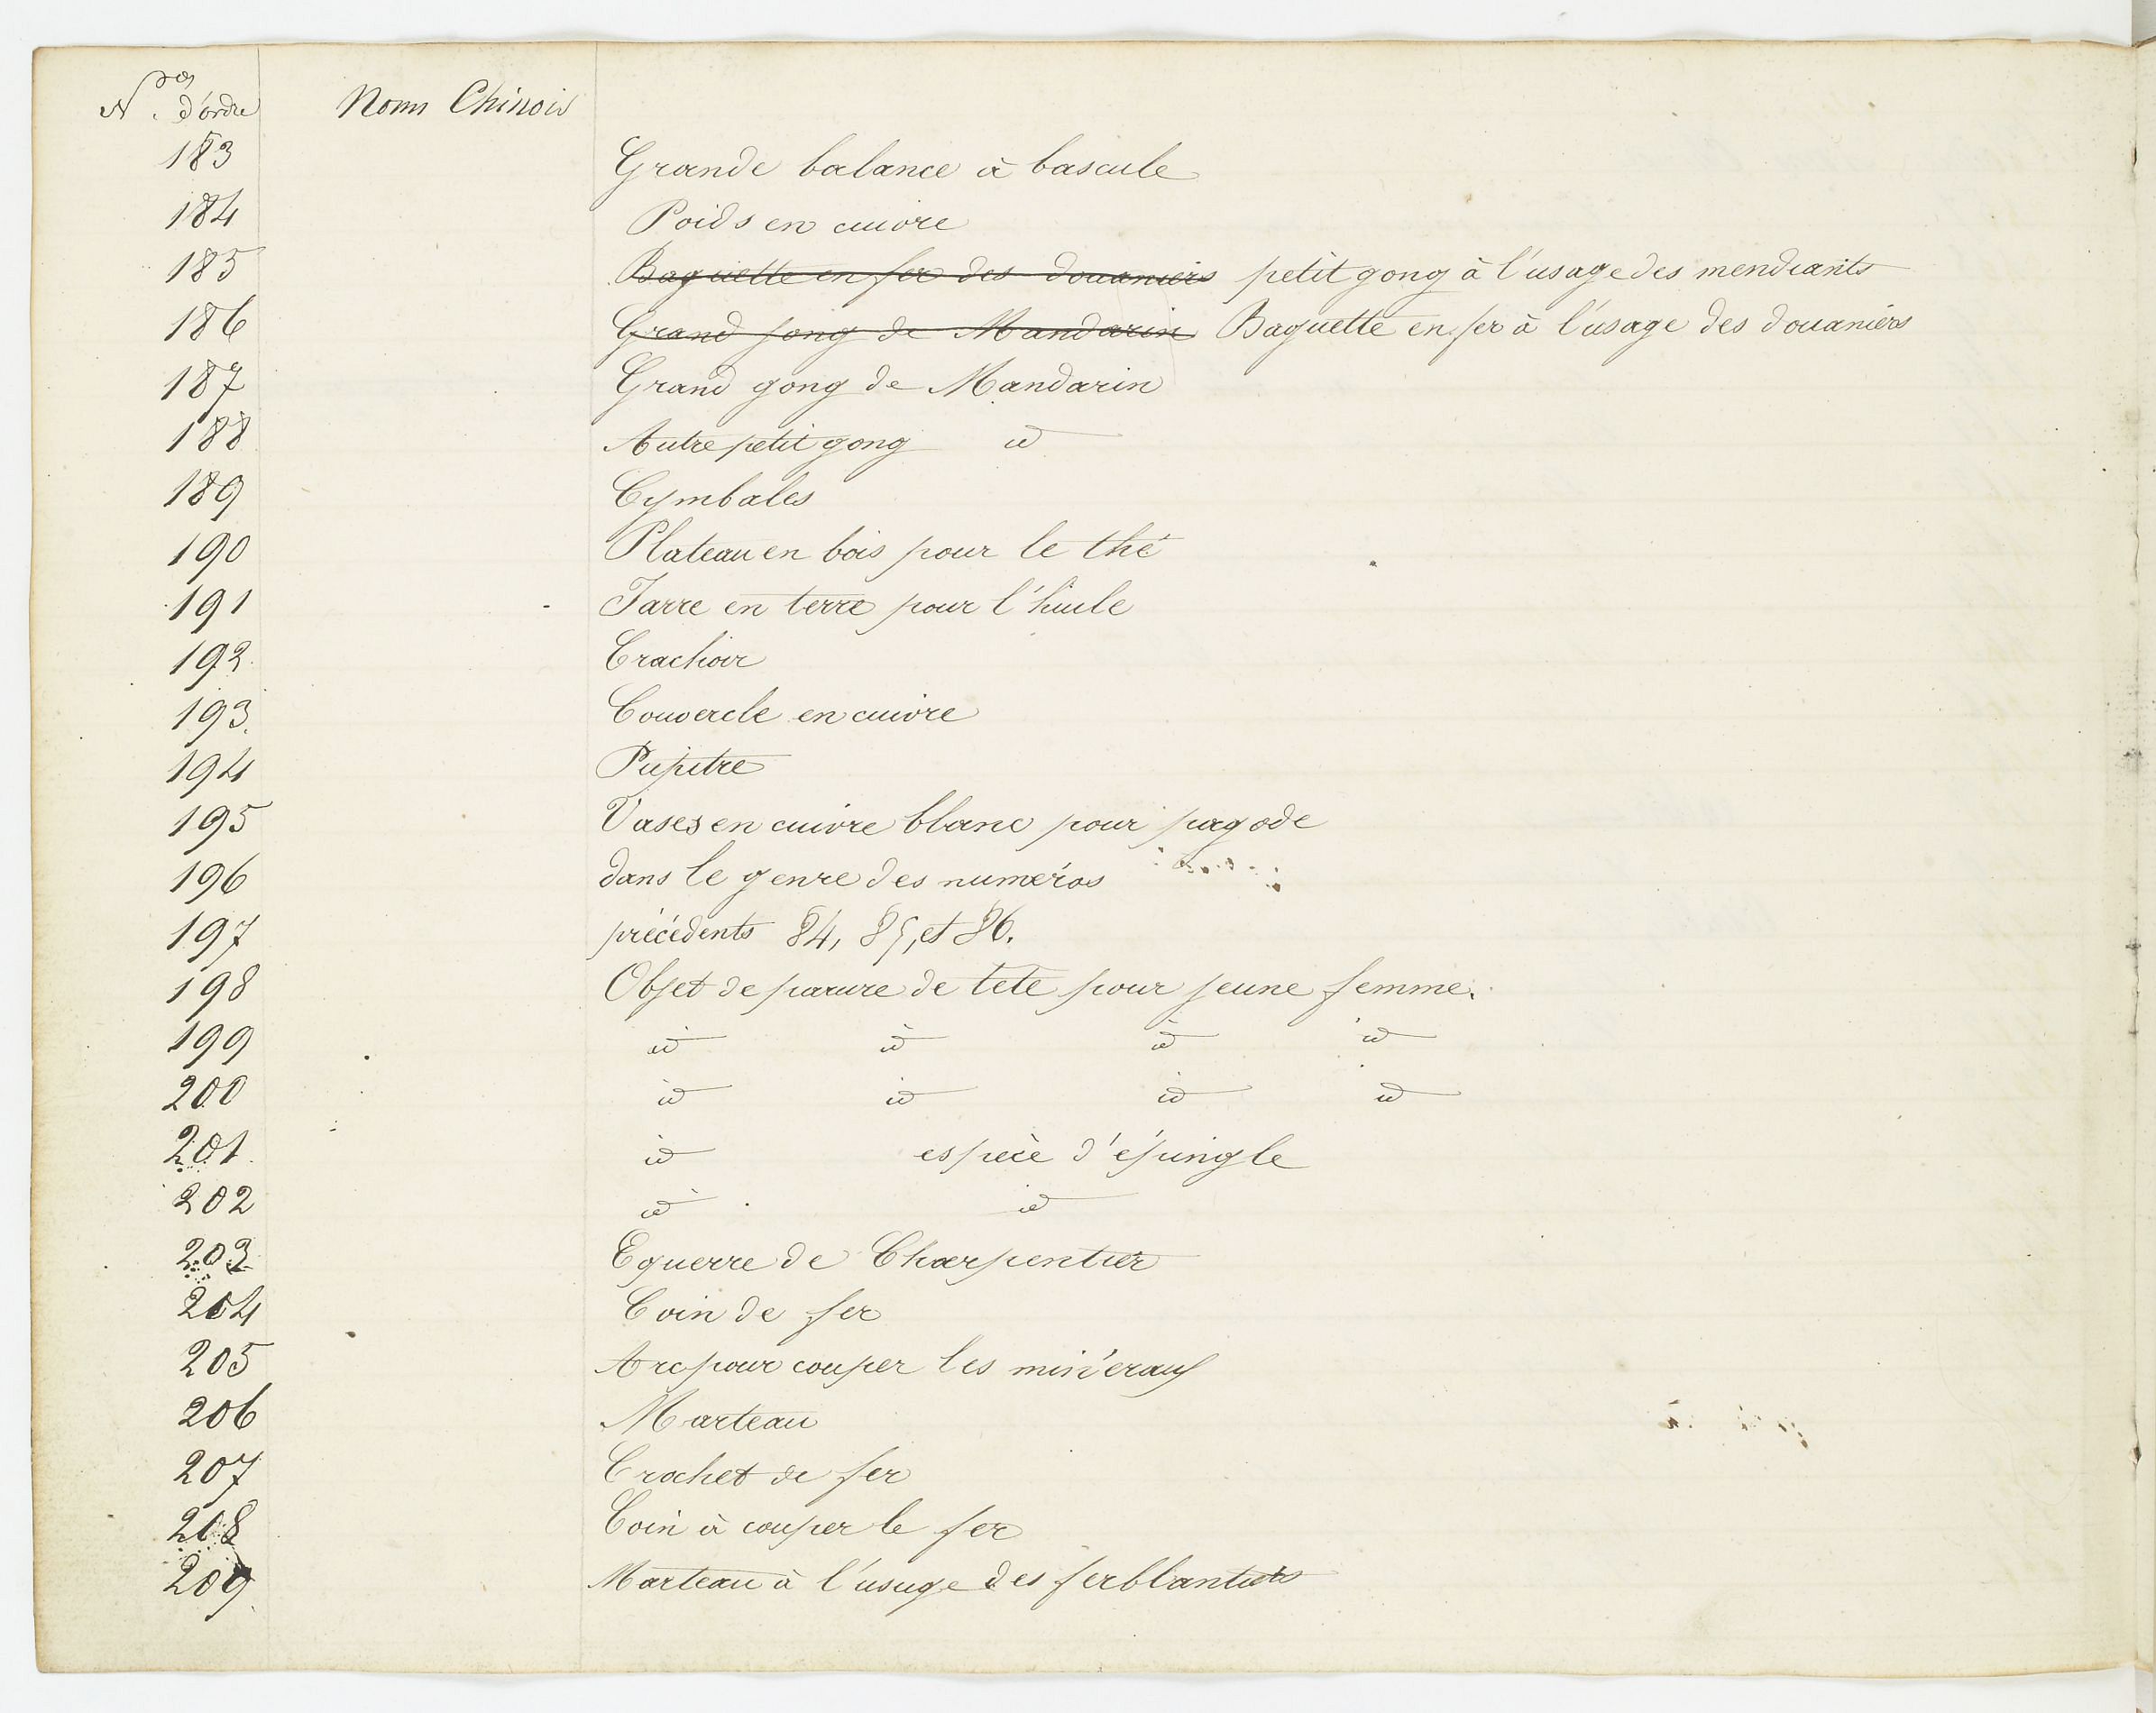 Nos d'ordre Noms Chinois
183 Grande balance à bascule
184 Poids en cuivre
185 Baguette en fer des douaniers petit gong à l'usage des mendiants
186 Grand gong de Mandarin Baguette en fer à l'usage des douaniers
187 Grand gong de Mandarin
188 Autre petit gong id
189 Cymbales
190 Plateau en bois pour le thé
191 Jarre en terre pour l'huile
192 Crachoir
193 Couvercle en cuivre
194 Pupitre
195 Vases en cuivre blanc pour pagode
196 dans le genre des numéros
197 précédents 84, 85, et 86.
198 Objet de parure de tete pour jeune femme.
199 id id id id
200 id id id id
201 id espèce d'épingle
202 id id
203 Equerre de Charpentier
204 Coin de fer
205 Arc pour couper les minéraux
206 Marteau
207 Crochet de fer
208 Coin à couper le fer
209 Marteau à l'usage des ferblantiers